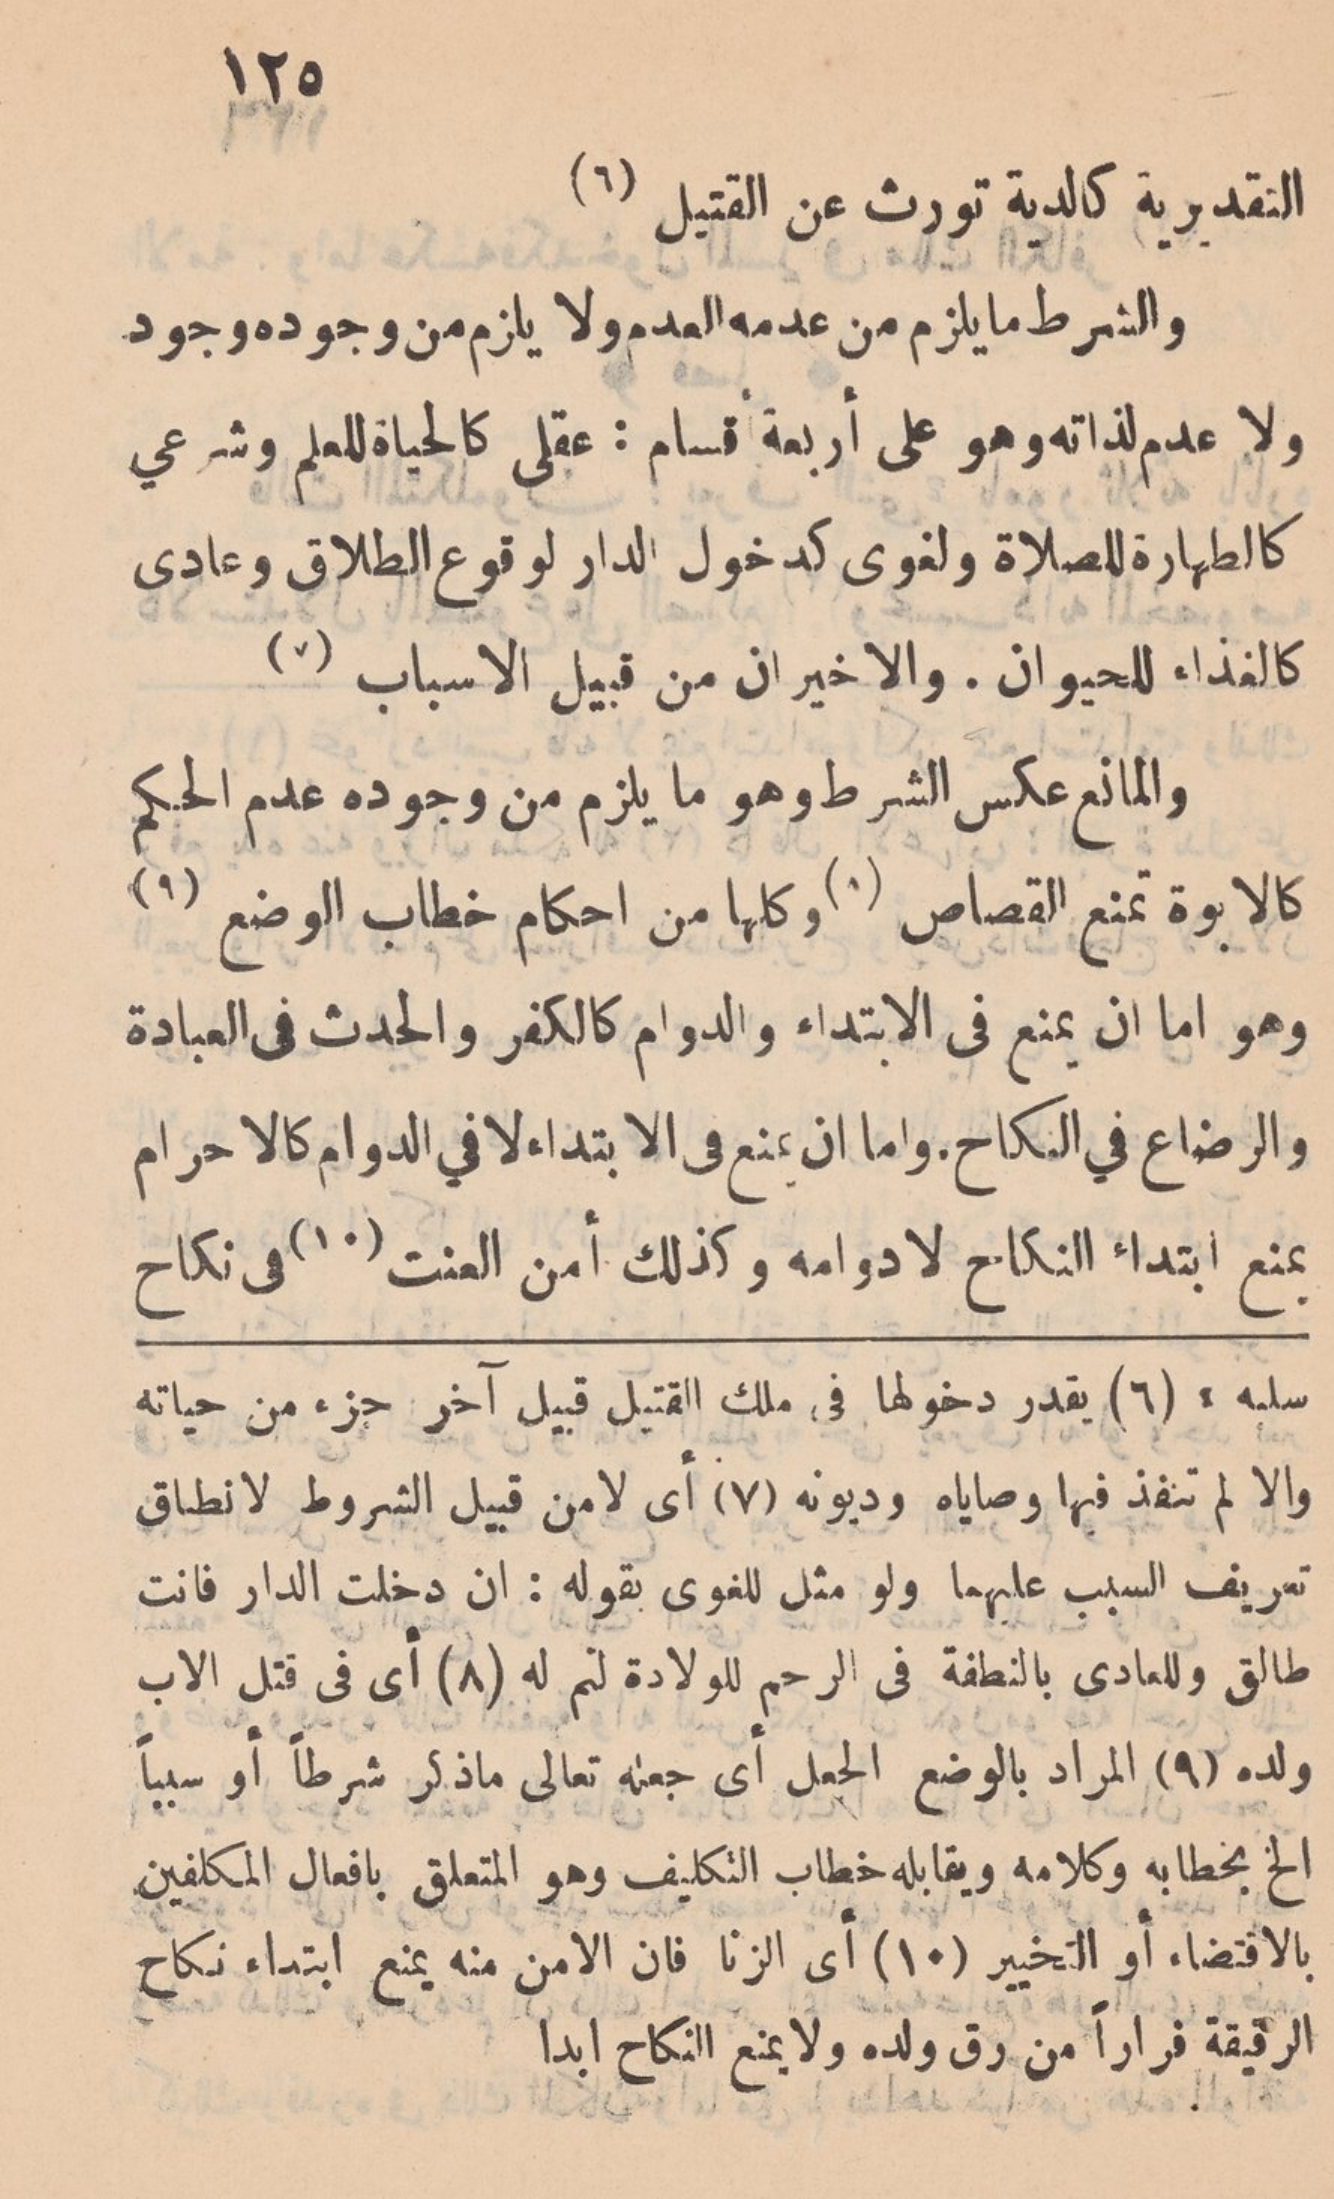 ١٢٥
التقديرية كالدية تورث عن القتيل (٦)
والشرط ما يلزم من عدمه العدم ولا يلزم من وجوده وجود
ولا عدم لذاته وهو على أربعة أقسام : عقلى كالحياة للعلم وشرعي
كالطهارة للصلاة ولغوى كدخول الدار لوقوع الطلاق وعادى
كالغذاء للحيوان . والاخيران من قبيل الاسباب (٧)
والمانع عكس الشرط وهو ما يلزم من وجوده عدم الحكم
كالابوة تمنع القصاص (٨) وكلها من احكام خطاب الوضع (٩)
وهو اما ان يمنع فى الابتداء والدوام كالكفر والحدث فى العبادة
والرضاع في النكاح . واما ان يمنع فى الابتداء لا في الدوام كالاحرام
يمنع ابتداء النكاح لا دوامه وكذلك أمن العنت (١٠) فى نكاح
سلبه ؛ (٦) يقدر دخولها فى ملك القتيل قبيل آخر جزء من حياته
والا لم تنفذ فيها وصاياه وديونه (٧) أى لا من قبيل الشروط لانطباق
تعريف السبب عليهما ولو مثل للغوى بقوله : ان دخلت الدار فانت
طالق وللعادى بالنطفة فى الرحم للولادة لتم له (٨) أى فى قتل الاب
ولده (٩) المراد بالوضع الجعل أى جعله تعالى ماذكر شرطاً أو سبباً
الخ بخطابه وكلامه ويقابله خطاب التكليف وهو المتعلق بافعال المكلفين
بالاقتضاء أو التخيير (١٠) أى الزنا فان الامن منه يمنع ابتداء نكاح
الرقيقة فراراً من رق ولده ولا يمنع النكاح ابدا